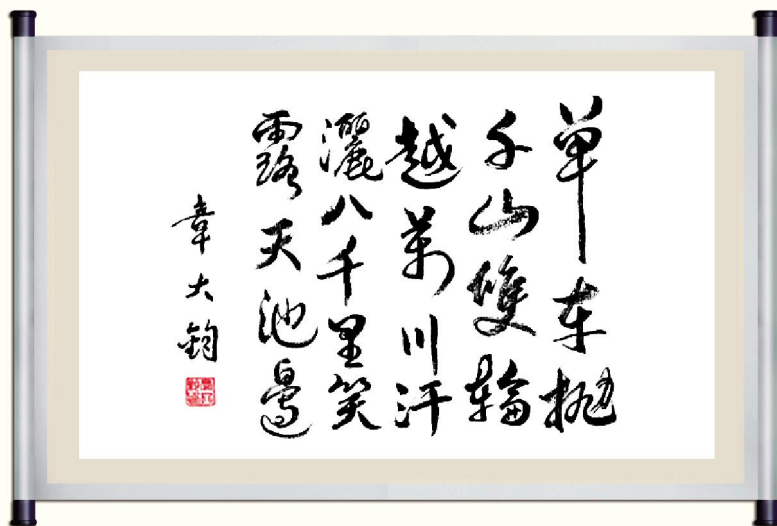 单车抛
千山雙輪
越萬川汗
灑八千里笑
露天池邊
章大鈞